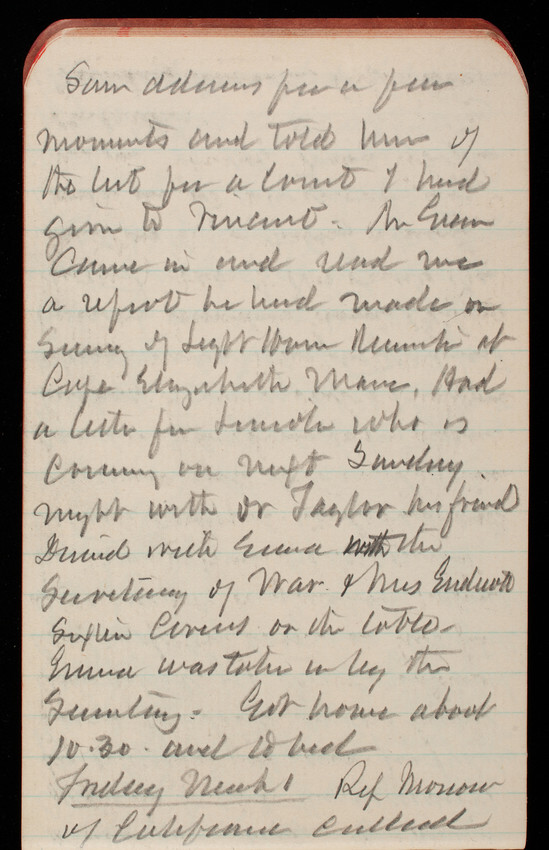 Sam Adams for a few
moments and told him of
the list for a Court I had
given to Vincent. Mr Evan
Came in and read me
a report he had made on
Survey of Light House Reservation at
Cape Elizabeth, Maine. Had
a letter from Lincoln who is
Coming on next Sunday
night with Dr Taylor his friend
Dined with Emma with the
Secretary of War & Mrs Endicott
Sixteen Covers on the table.
Emma was taken in by the
Secretary. Got home about
10.30. and to bed
Friday March 1 Rep Morrow
of California called